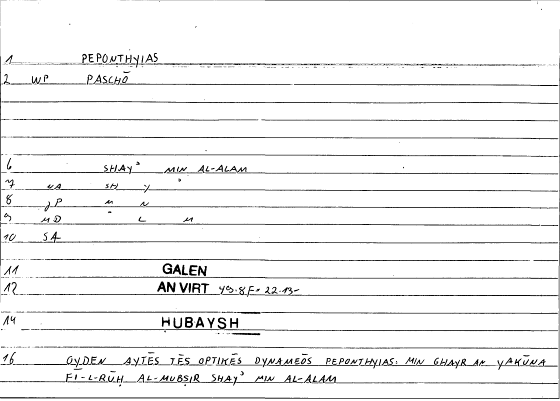 1 PEPONTHYIAS
2 WP PASCHŌ
6 SHAYʾ MIN AL-ALAM
7 NA SH Y ʾ
8 JP M N
9 MD ʾ L M
10 SA
11 GALEN
12 AN VIRT
14 HUBAYSH
16 OYDEN AYTĒS TĒS OPTIKĒS DYNAMEŌS PEPONTHYIAS: MIN GHAYR AN YAKŪNA
FĪ-L-RŪḤ AL-MUBṢIR SHAYʾ MIN AL-ALAM